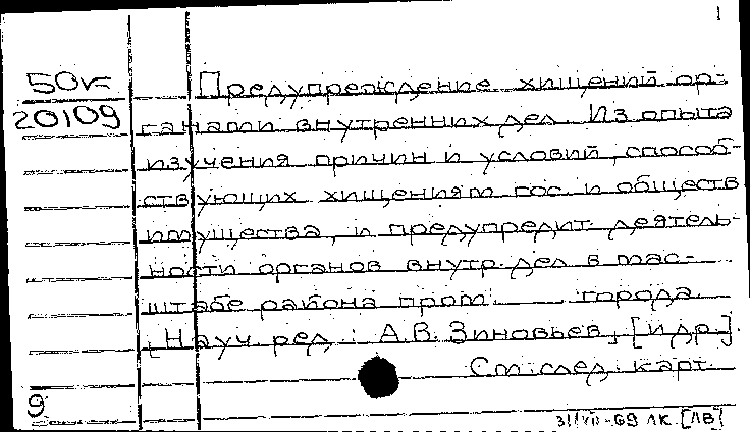 1
50к
20109
Предупреждение хищений ор-
ганами внутренних дел. Из опыта
изучения причин и условий, способ-
ствующих хищениям гос. и обществ.
имущества, и предупредит. деятель-
ности органов внутр. дел в мас-
штабе района пром. города.
[Науч. ред.: А.В. Зиновьев, [и др.].
См. след. карт.
9
31/VII-69 ЛК [ЛВ]